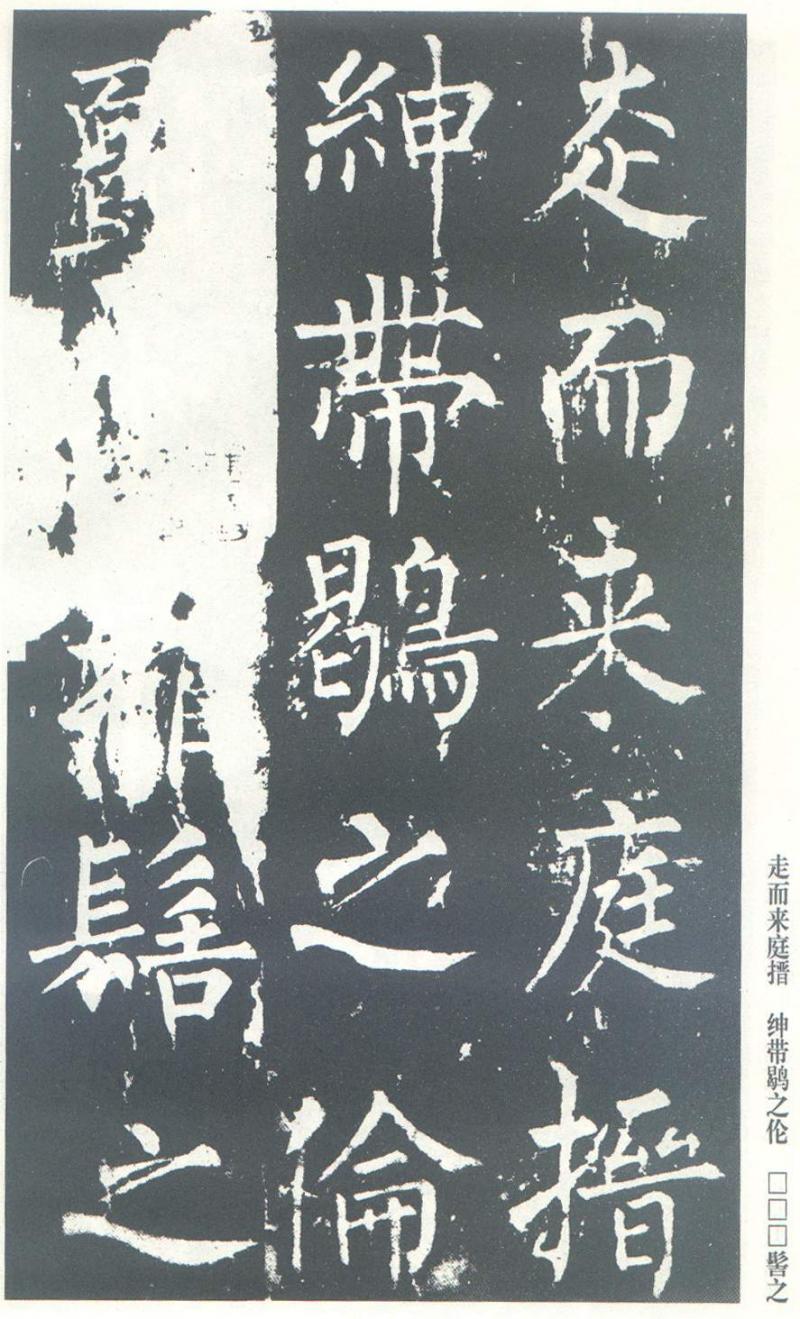 走而来庭搢
紳帶鶡之倫
髻之
走而来庭搢 绅带鹖之伦 □□□髻之